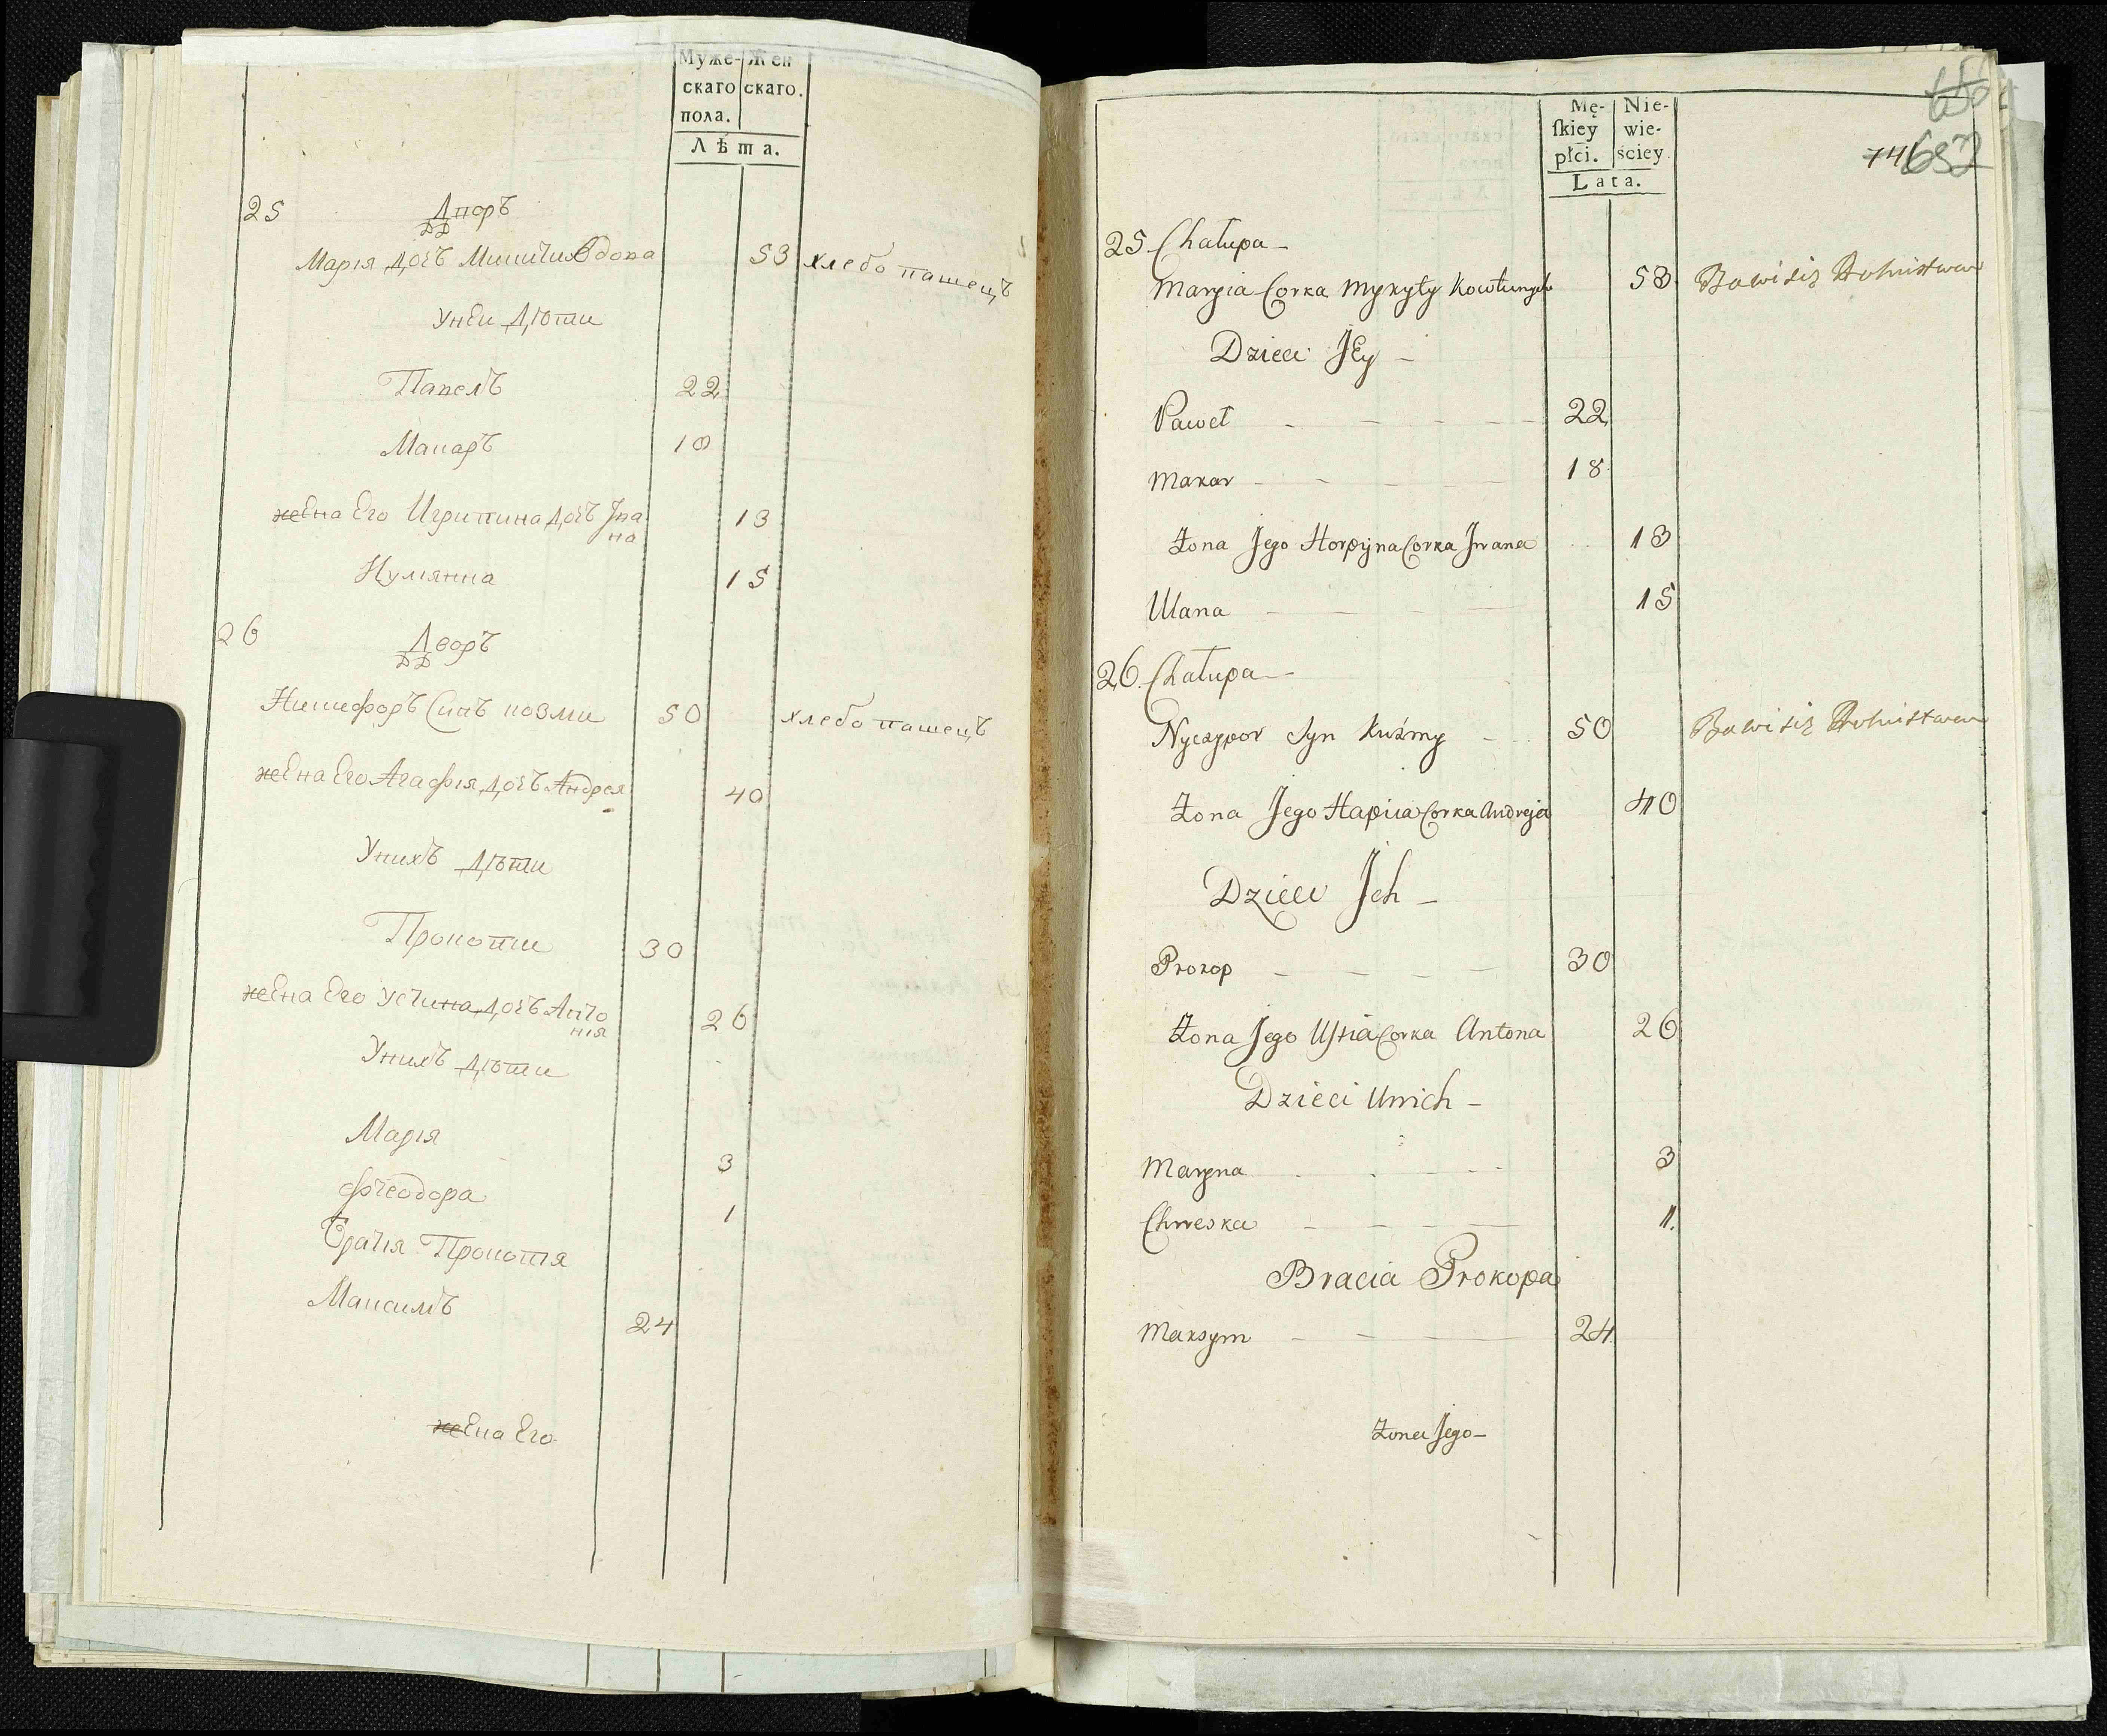 Муже- Жен
скаго скаго.
пола.
Лѣта.
25 Дворъ
Марія дочь Микити Вдова 53 хлебопашецъ
Унеи Дѣти
Павелъ 22
Макаръ 10
жена Его Игрипина дочь Іва
на 13
Иулянна 15
26 Дворъ
Никифоръ Синъ козми 50 хлебопашецъ
жена Его Агафія дочь Андрея 40
Унихъ Дѣти
Прокопи 30
жена Его Устина дочь Анто
нія 26
Унихъ дѣти
Марія 3
Фтеодора 1
Братія Прокопія
Максимъ 24
жена Его
Mę- Nie-
ſkiey wie-
płci. ściey.
Lata.
74 652
25 Chałupa
Maryia Corka Mykyty 53 Bawi się Rolnistwem
Dzieci JEy
Paweł 22
Makar 18
Żona Jego Horpyna Corka Iwana 13
Ulana 15
26. Chałupa
Nyczypor Syn Kuźmy 50 Bawi się Rolnistwem
Żona Jego Hapiia Corka Andreja 40
Dzieci Ich
Prokop 30
Żona Jego Ustia Corka Antona 26
Dzieci Unich
Maryna 3
Chweska 1.
Bracia Prokopa
Maksym 24
Żona Jego